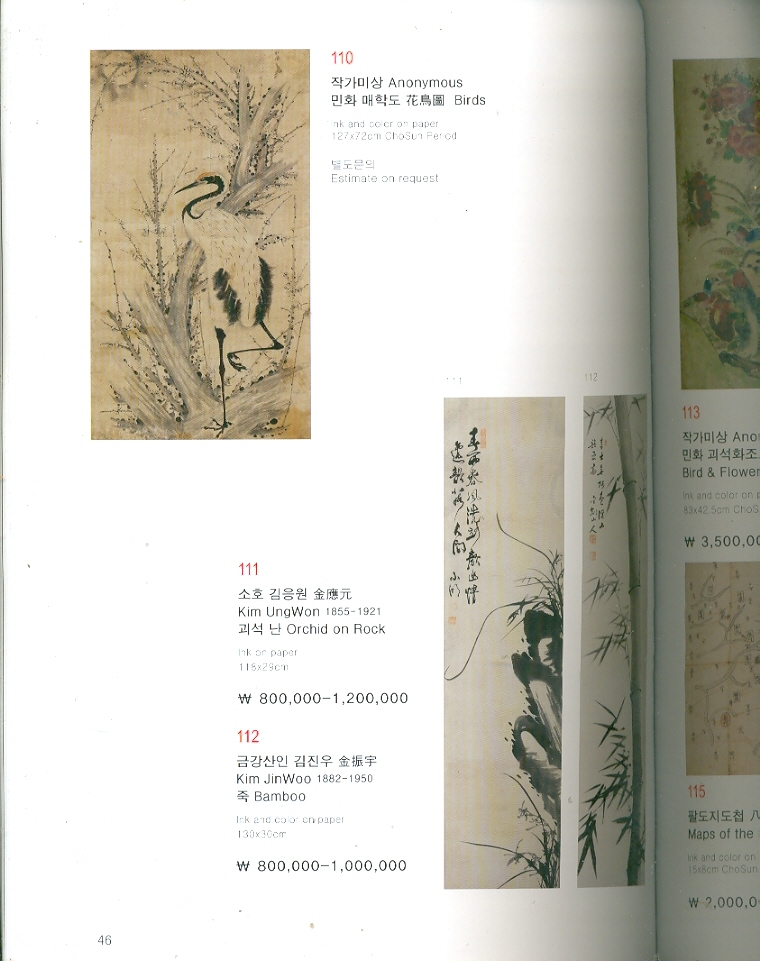 110
작가미상 Anonymous
민화 매학도 花鳥圖 Birds
Ink and color on paper
127x72cm ChoSun Period
별도문의
Estimate on request
111
소호 김응원 金應元
Kim UngWon 1855-1921
괴석 난 Orchid on Rock
Ink on paper
118x29cm
₩ 800,000-1,200,000
112
금강산인 김진우 金振宇
Kim JinWoo 1882-1950
죽 Bamboo
Ink and color on paper
130x30cm
₩ 800,000-1,000,000
46
111
112
113
작가미상
민화 괴석화조
Bird & Flower
Ink and color on
83x42.5cm
₩ 3,500,00
115
팔도지도첩 八
Maps of the
Ink and color on
15x8cm ChoSun
₩ 2,000,0